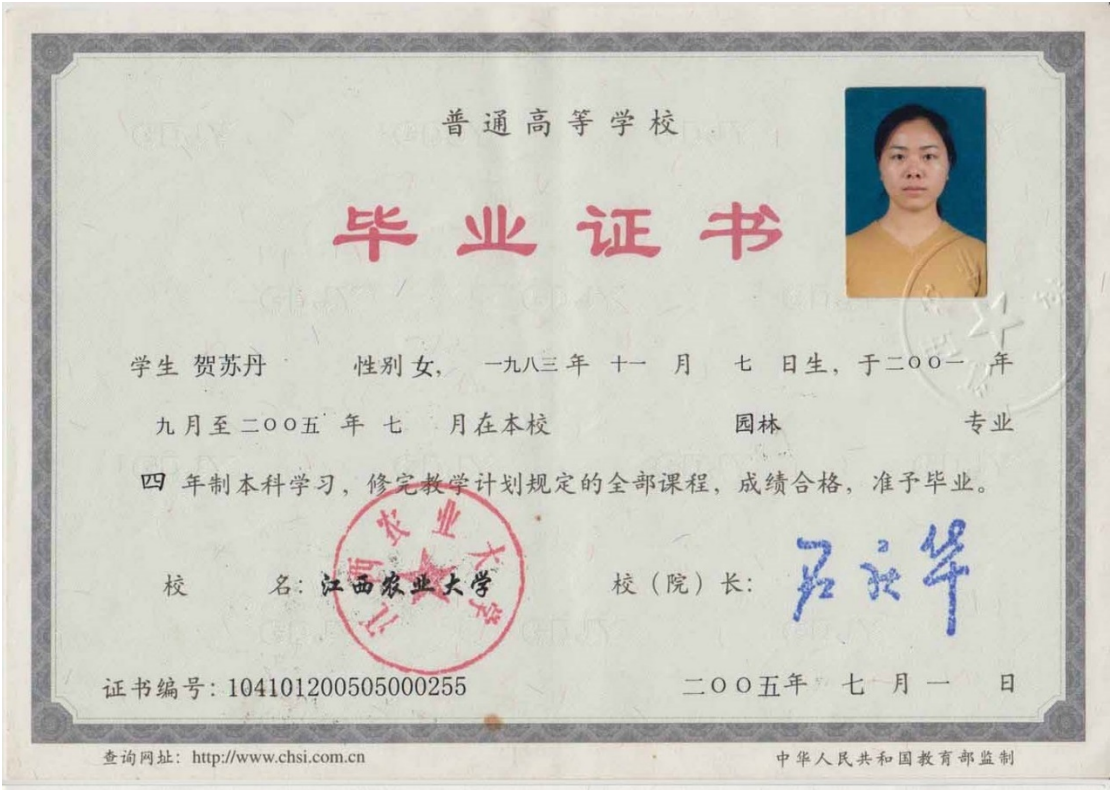 普通高等学校
毕业证书
学生 贺苏丹 性别 女, 一九八三 年 十一 月 七 日生, 于二〇〇一 年
九 月至 二〇〇五 年 七 月在本校 园林 专业
四 年制本科学习, 修完教学计划规定的全部课程, 成绩合格, 准予毕业。
江西农业大学
校 名: 江西农业大学 校（院）长:
证书编号: 104101200505000255 二〇〇五年 七 月 一 日
查询网址: http://www.chsi.com.cn 中华人民共和国教育部监制